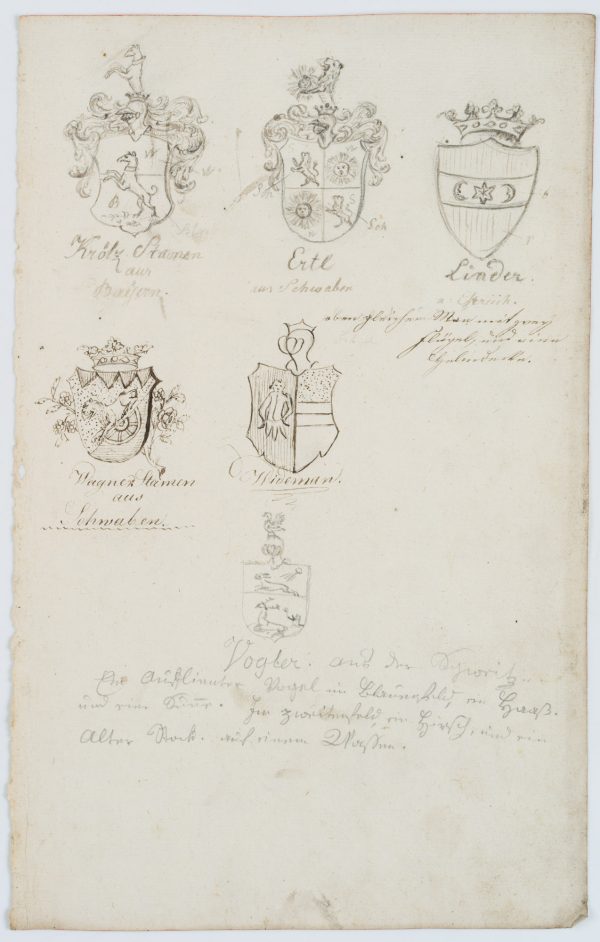 Krötz Stamen
aus
Baÿern.
Ertl
aus Schwaben
Linder.
eben gleichen Man mit zweÿ
Flügel, und einer
Helmdecke.
Wagner Stamen
aus
Schwaben.
Wideman.
Vogler. aus der Schweitz.
Vogel im Blauenfeld, ein Haaß.
und eine Sonne. Im zweitenfeld, ein Hirsch, und ein
Alter Stock. auf einem Wassen.